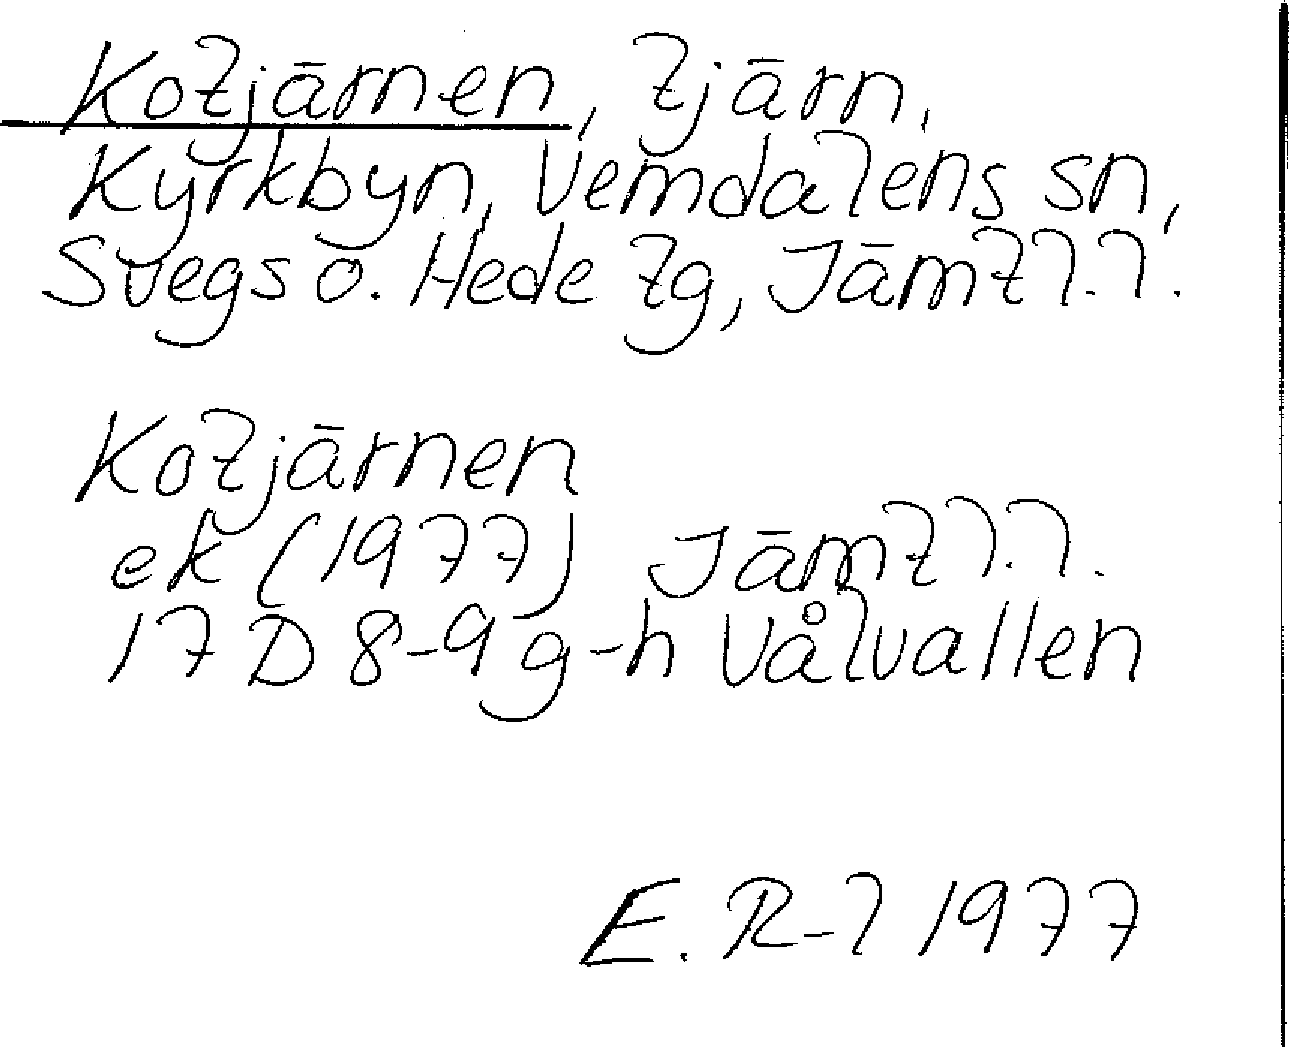 Kotjärnen, tjärn,
Kyrkbyn, Vemdalens sn,
Svegs o. Hede tg, Jämtl. l.
Kotjärnen
ek (1977) Jämtl. l.
17 D 8-9 g-h Vålvallen
E. R-l 1977